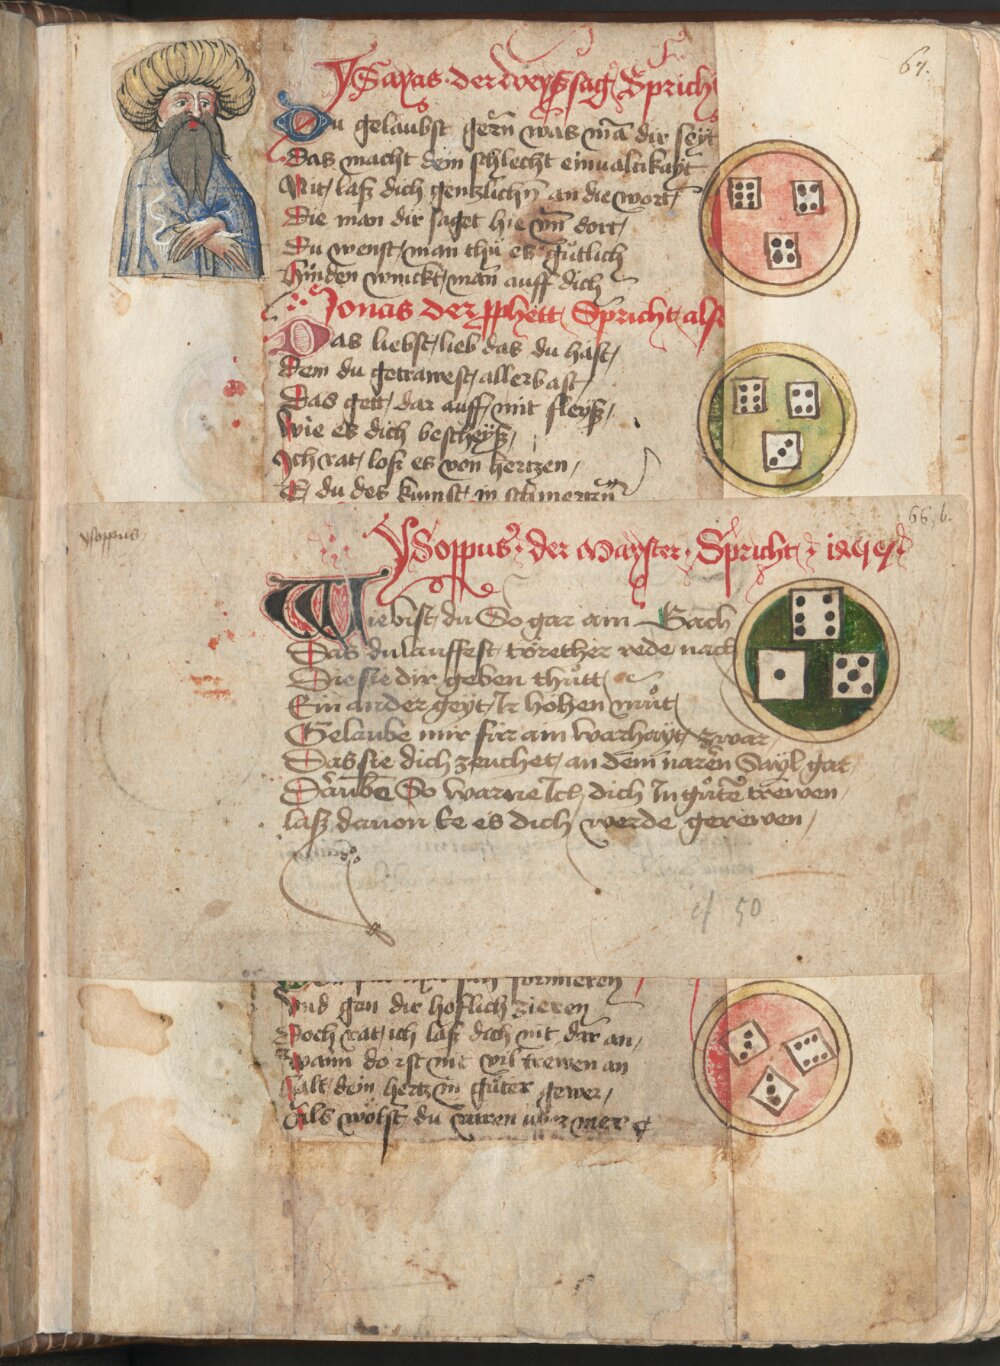 67.
Ysayas · der weyssag Sprich
Du gelaubst gern was mā dir seyt
Das macht dein schlecht einualtikayt
Nit laß dich genczlichn̄ an die wort /
Die man dir saget hie vn̄ dort /
Du wenst / man thů es gůtlich
Hinden winckt / man auff dich
Jonas der pphett Spricht also
Das liebst / lieb das du hast /
Dem du getrawest / aller bast
Das gett / dar auff / mit fleyß /
Wie es dich bescheyß /
Ich rat / loß es von hertzen /
E du des kumst in schmertzn̄
66,b.
ysoppus /
YSoppus · der Mayster · Spricht ·
Wie bist du So gar am Gach
Das du lauffest torether rede nach
Die sie dir geben thůtt
Ein ander geyt Ir hohen můt
Gelaube mir für ain warhayt zwar
Das sie dich zeuchet / an dem naren̄ Sayl gar
Darumb So warne Ich dich In gůter trewen /
laß dauon Ee es dich werde gerewen /
cf 50
Vnd gen dir hoflich zieren
Doch rat ich laß dich nit dar an /
Wann do ist nit vil trewen an
Halt dein hertz in guter gewer /
Als wolst du varen uber mer